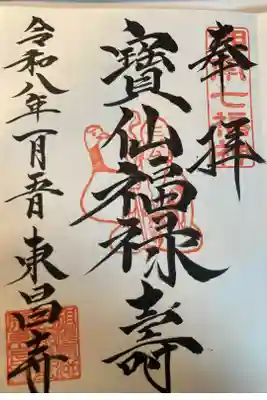 奉拝
七福神
寶仙福禄壽
令和八年一月吾日
東昌寺